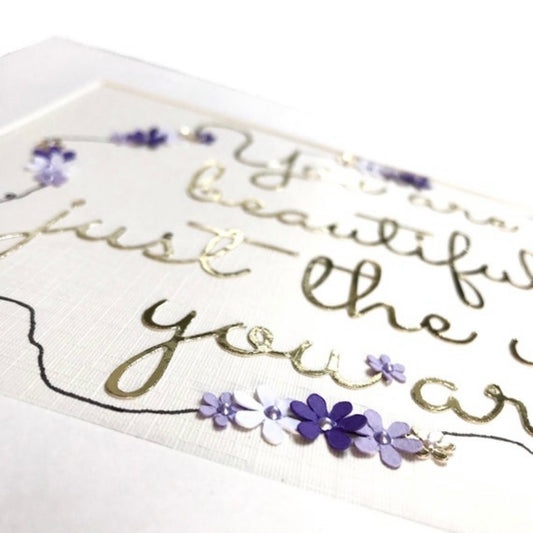 You are
beautiful
just the
you are